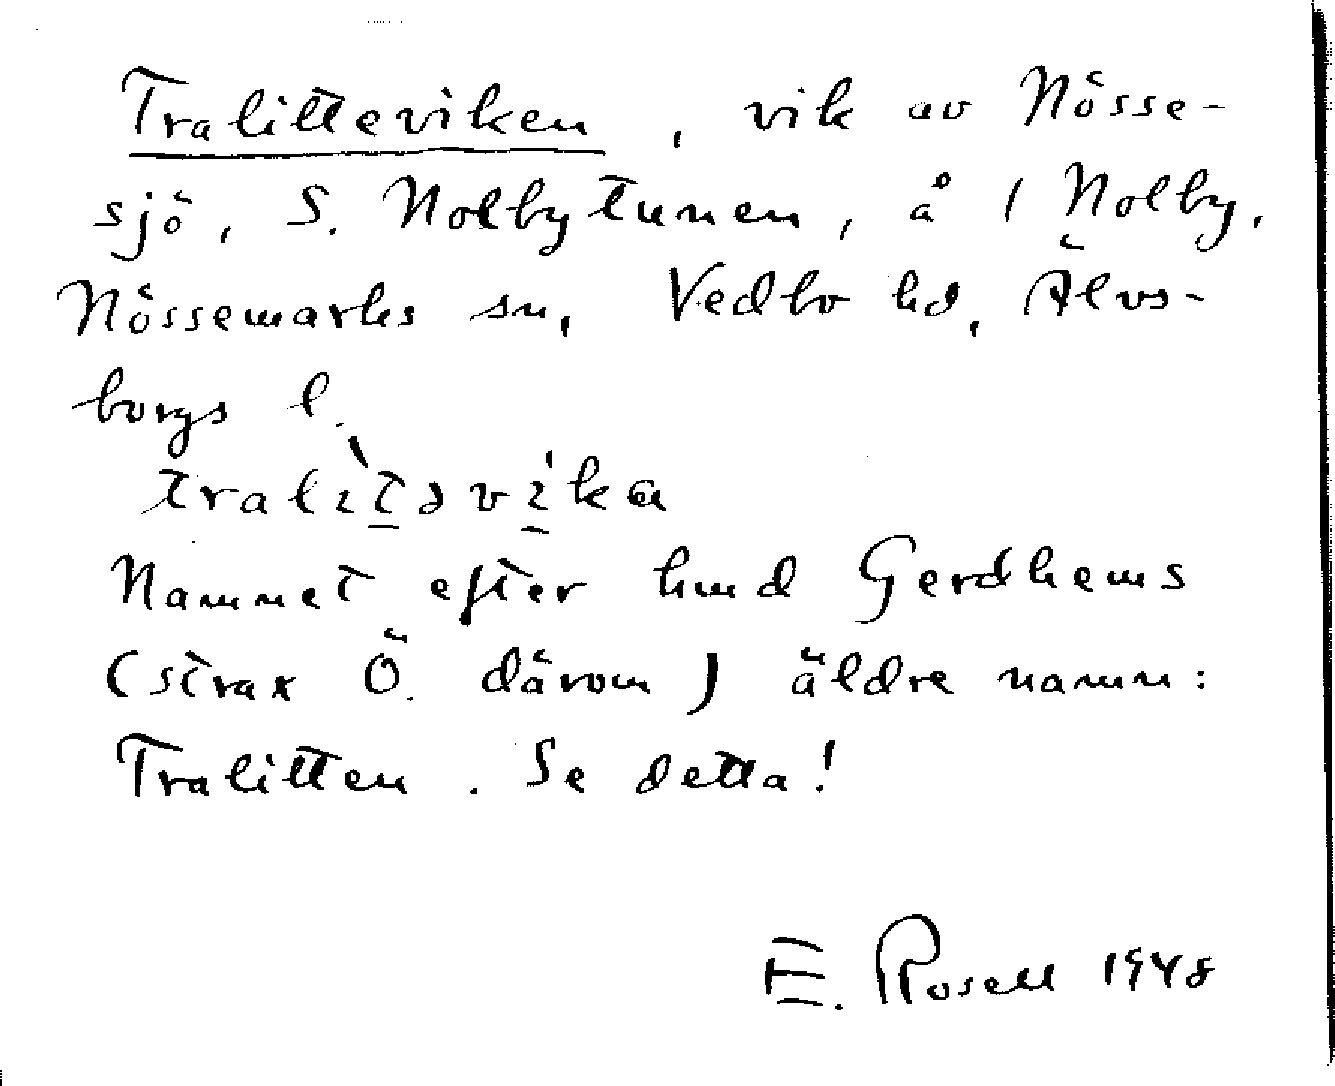 Tralitteviken, vik av Nösse-
sjö, S. Nolbytunen, å 1 Nolby,
Nössemarks sn, Vedbo hd, Älvs-
borgs l.
tralìtəvíka
Namnet efter hmd Gerdhems
(strax Ö. därom) äldre namn:
Tralitten. Se detta!
E. Rosell 1948